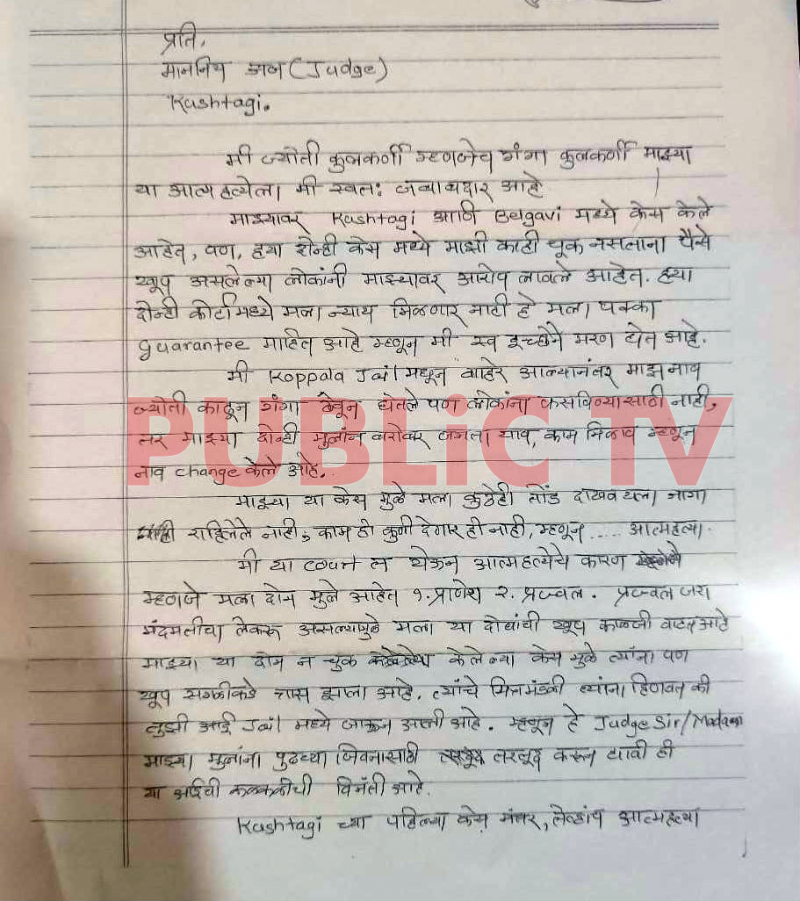 प्रति,
माननिय जज (Judge)
Kushtagi.
मी ज्योती कुलकर्णी म्हणजेच गंगा कुलकर्णी माझ्या
या आत्महत्येला मी स्वतः जबाबदार आहे
माझ्यावर Kushtagi आणि Belgavi मध्ये केस केले
आहेत, पण, ह्या दोन्ही केस मध्ये माझी काही चूक नसताना पैसे
खूप असलेल्या लोकांनी माझ्यावर आरोप लावले आहेत. ह्या
दोन्ही कोर्टामध्ये मला न्याय मिळणार नाही हे मला पक्का
guarantee माहित आहे म्हणून मी स्व इच्छेने मरण घेत आहे.
मी Koppala Jail मधून बाहेर आल्यानंतर माझ नाव
ज्योती काढून गंगा ठेवून घेतले पण लोकांना फसविण्यासाठी नाही,
तर माझ्या दोन्ही मुलांन बरोबर जगता याव, काम मिळाव म्हणून
नाव change केले आहे.
माझ्या या केस मुळे मला कुठेही तोंड दाखवयला जागा
राहिलेले नाही, काम ही कुणी देणार ही नाही, म्हणून ..... आत्महत्या.
मी या court ल येऊन आत्महत्येचे कारण
म्हणजे मला दोन मुले आहेत १. प्राणेश २. प्रज्वल. प्रज्वल जरा
मंदमतीचा लेकरू असल्यामुळे मला या दोघांची खूप काळजी वाटत आहे
माझ्या या दोन न चुक केलेल्या केस मुळे त्यांना पण
खूप सगळीकडे त्रास झाला आहे. त्यांचे मित्रमंडळी त्यांना हिणवत की
तुझी आई Jail मध्ये जाऊन आली आहे. म्हणून हे Judge Sir/Madam
माझ्या मुलांना पुढच्या जिवनासाठी तरतूद करून द्यावी ही
या आईची कळकळीची विनंती आहे.
Kushtagi च्या पहिल्या केस नंतर, तेव्हांच आत्महत्या
PUBLiC TV